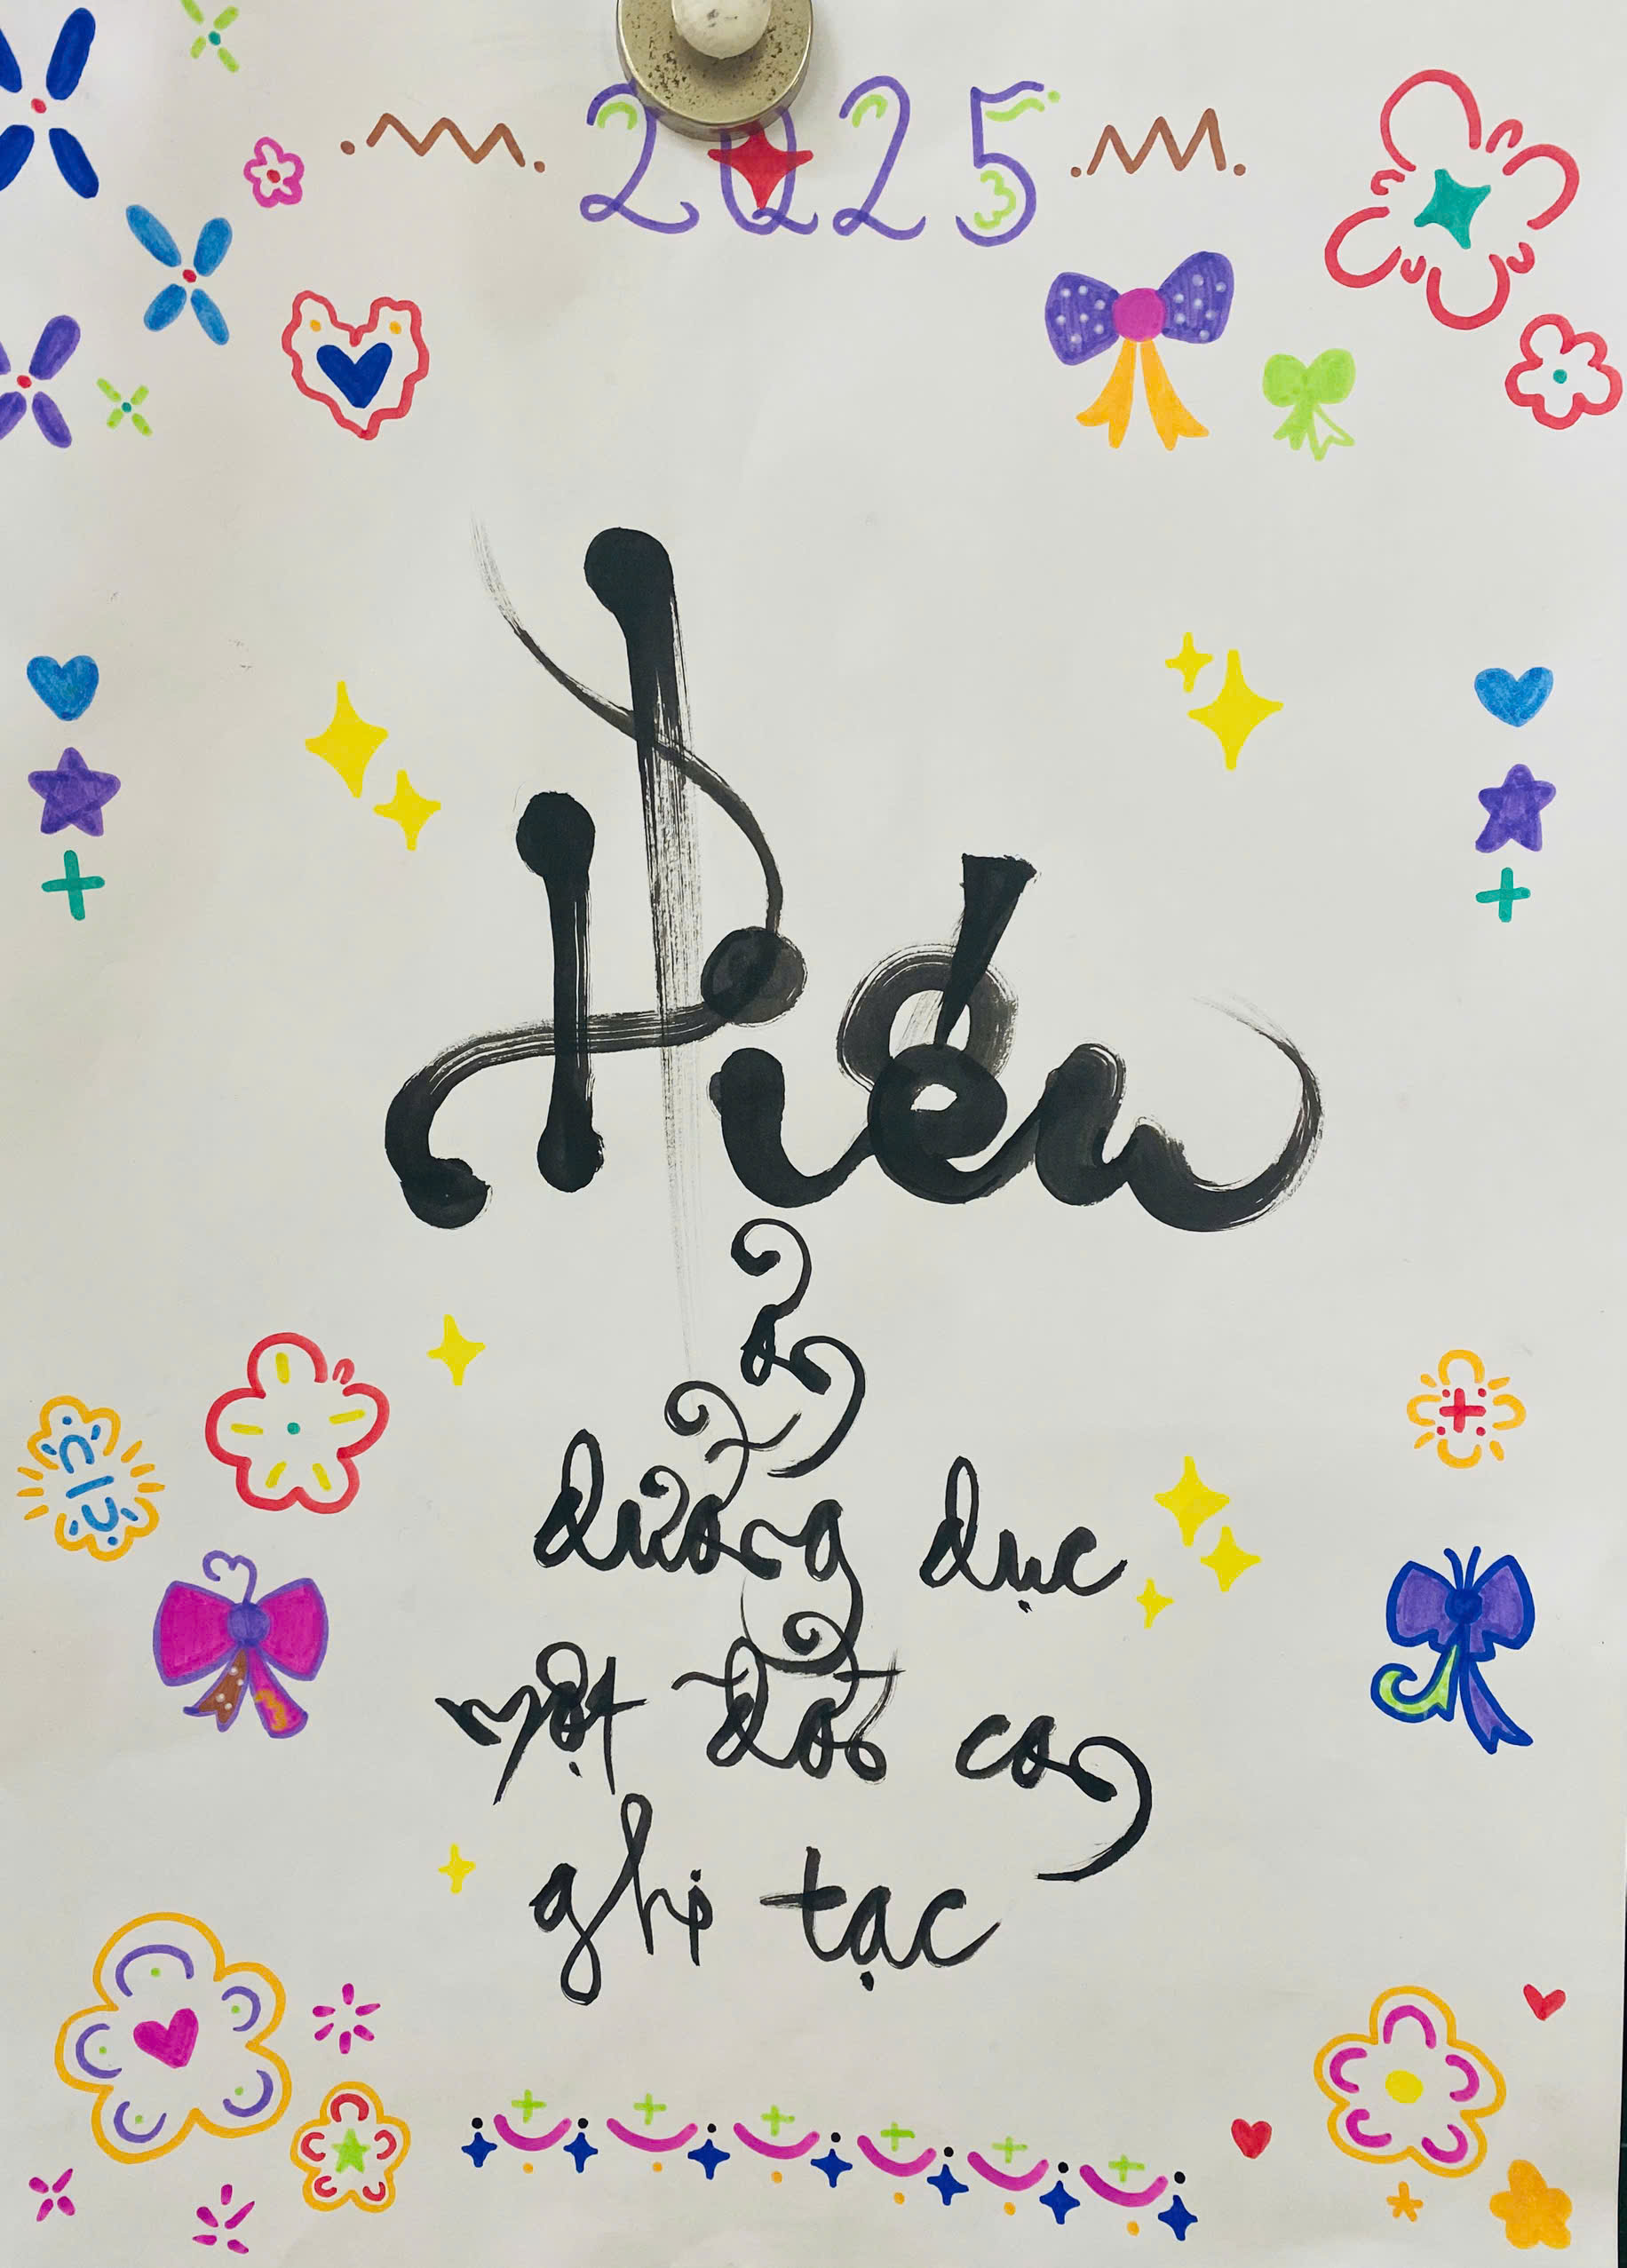 2025
Hiếu
ơn
dưỡng dục
một đời con
ghi tạc